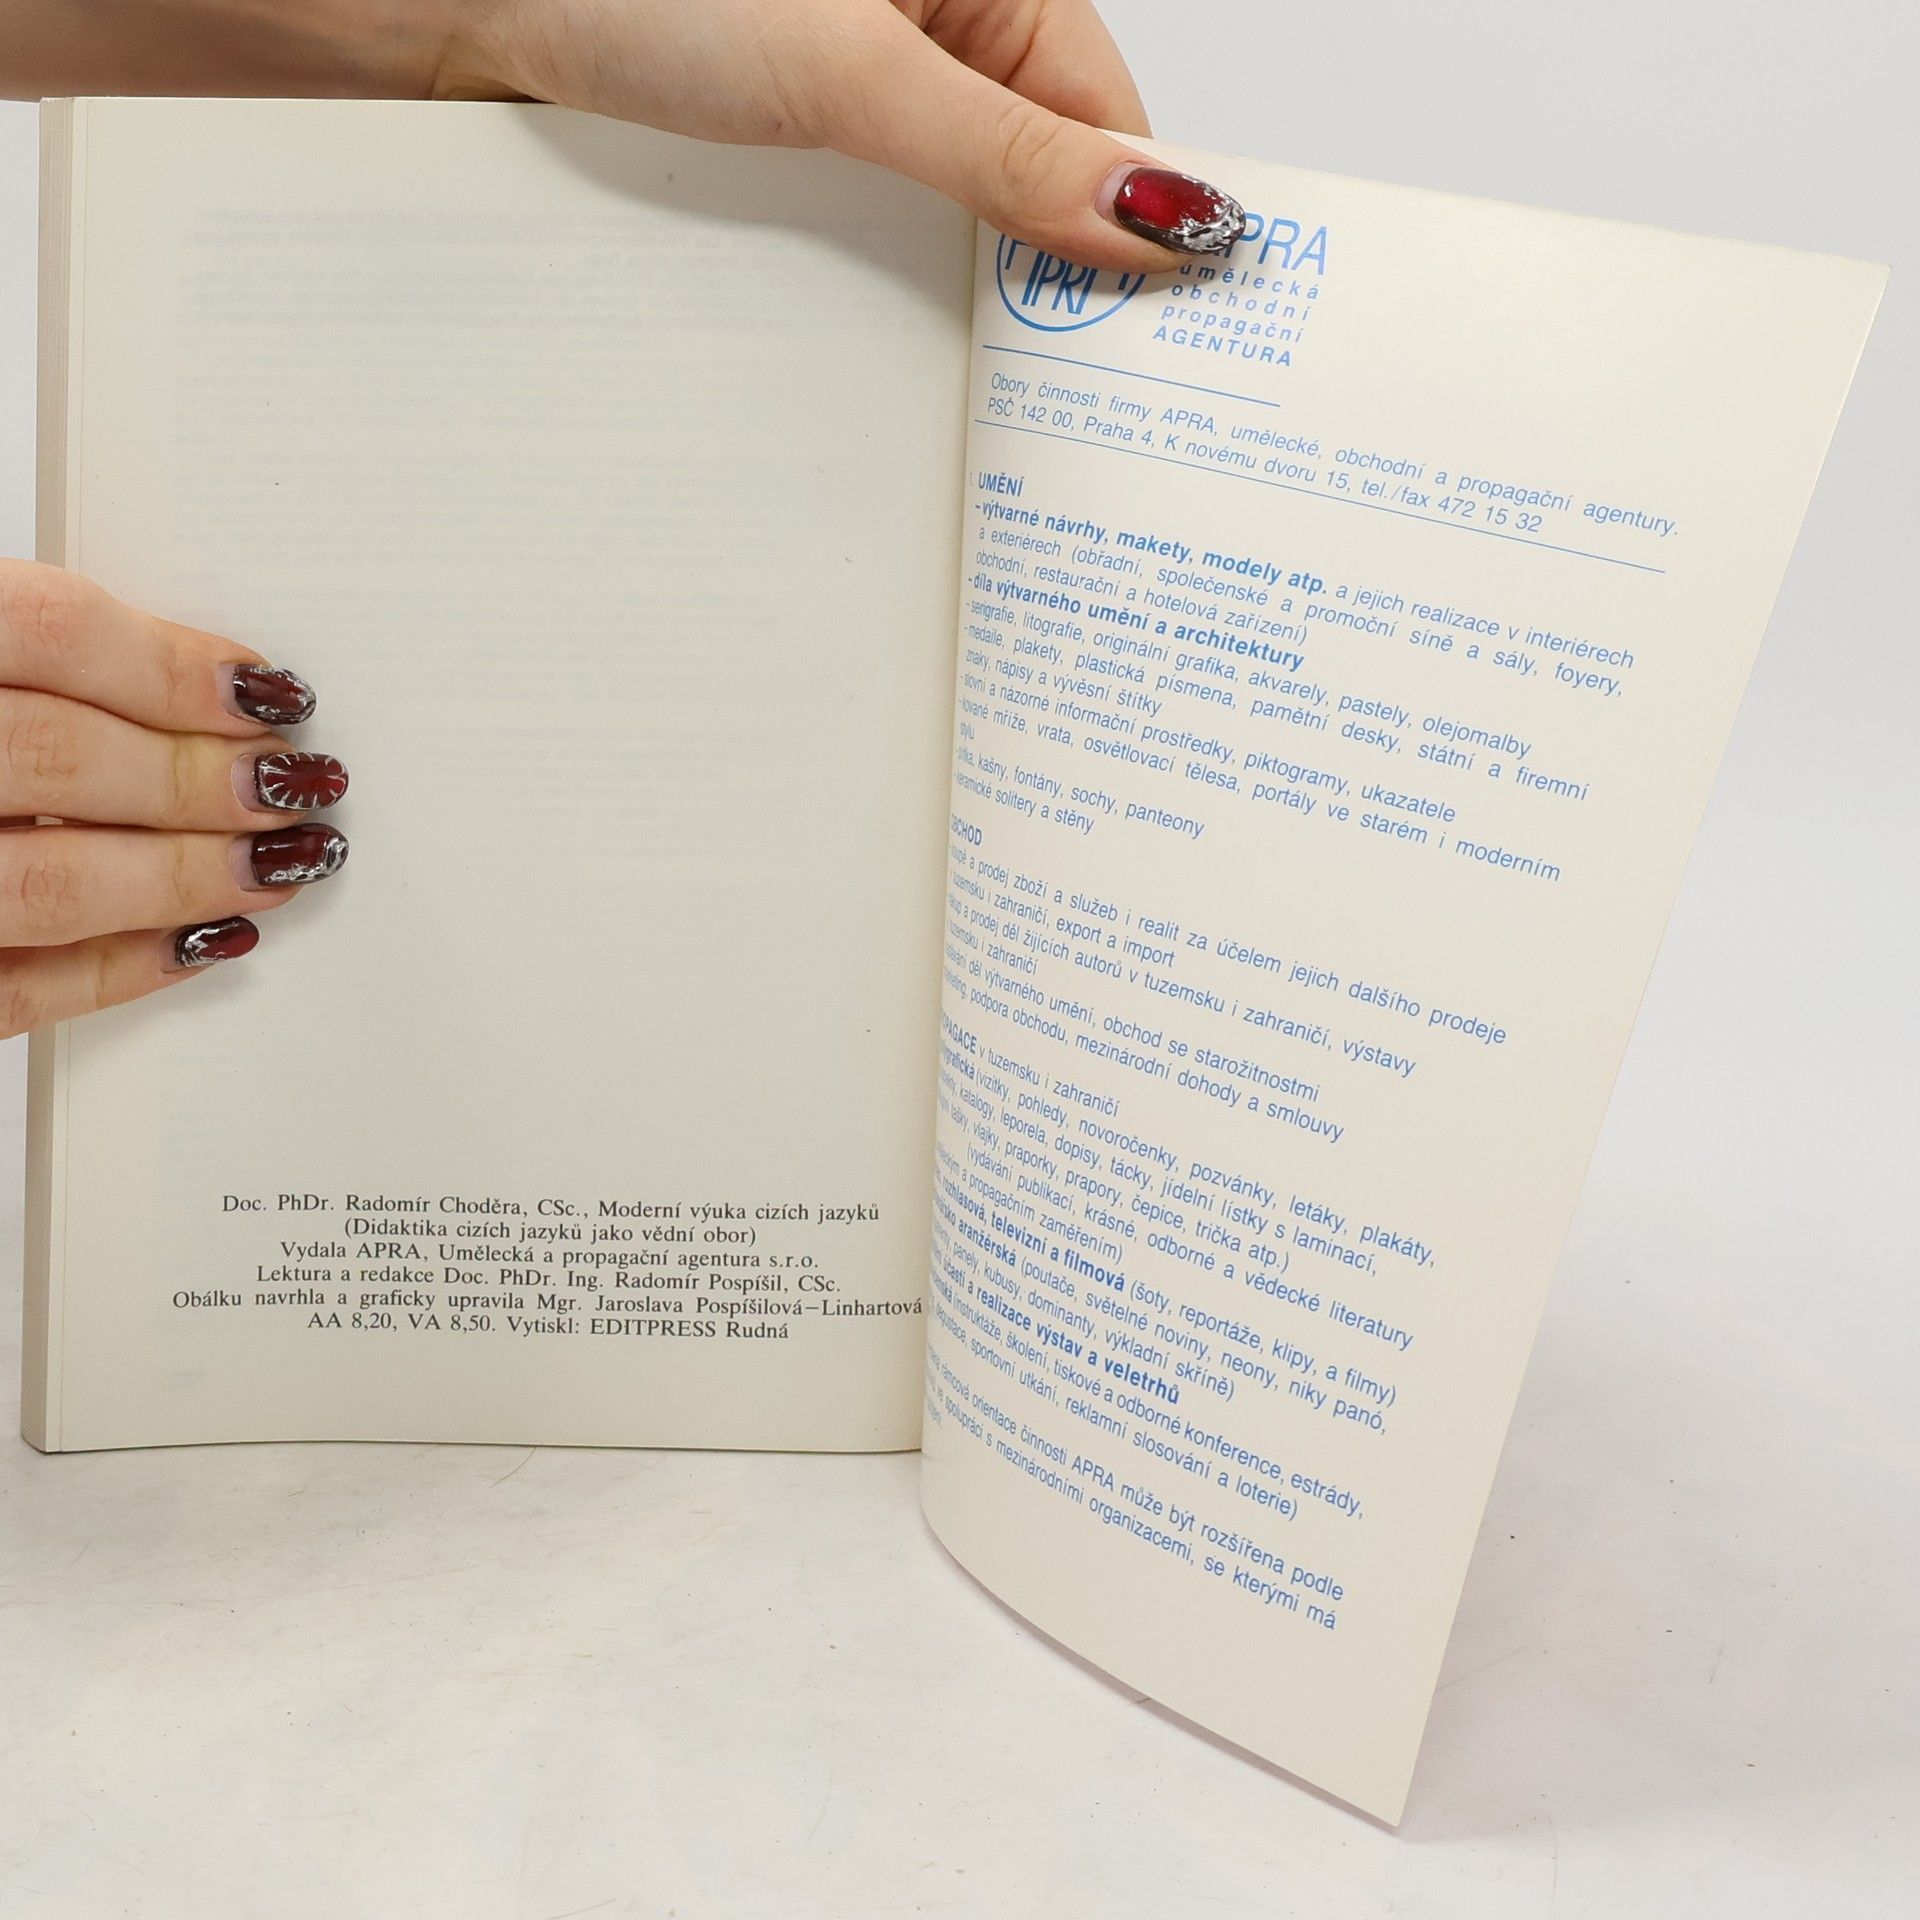 Doc. PhDr. Radomír Choděra, CSc., Moderní výuka cizích jazyků
(Didaktika cizích jazyků jako vědní obor)
Vydala APRA, Umělecká a propagační agentura s.r.o.
Lektura a redakce Doc. PhDr. Ing. Radomír Pospíšil, CSc.
Obálku navrhla a graficky upravila Mgr. Jaroslava Pospíšilová–Linhartová
AA 8,20, VA 8,50. Vytiskl: EDITPRESS Rudná
umělecká
obchodní
propagační
AGENTURA
Obory činnosti firmy APRA, umělecké, obchodní a propagační agentury.
PSČ 142 00, Praha 4, K novému dvoru 15, tel./fax 472 15 32
1. UMĚNÍ
-výtvarné návrhy, makety, modely atp. a jejich realizace v interiérech
a exteriérech (obřadní, společenské a promoční síně a sály, foyery,
obchodní, restaurační a hotelová zařízení)
-díla výtvarného umění a architektury
-serigrafie, litografie, originální grafika, akvarely, pastely, olejomalby
-medaile, plakety, plastická písmena, pamětní desky, státní a firemní
znaky, nápisy a vývěsní štítky
-slovní a názorné informační prostředky, piktogramy, ukazatele
-kované mříže, vrata, osvětlovací tělesa, portály ve starém i moderním
stylu
kašny, fontány, sochy, panteony
keramické solitery a stěny
OBCHOD
a prodej zboží a služeb i realit za účelem jejich dalšího prodeje
tuzemsku i zahraničí, export a import
a prodej děl žijících autorů v tuzemsku i zahraničí, výstavy
tuzemsku i zahraničí
děl výtvarného umění, obchod se starožitnostmi
podpora obchodu, mezinárodní dohody a smlouvy
v tuzemsku i zahraničí
(vizitky, pohledy, novoročenky, pozvánky, letáky, plakáty,
katalogy, leporela, dopisy, tácky, jídelní lístky s laminací,
tašky, vlajky, praporky, prapory, čepice, trička atp.)
(vydávání publikací, krásné, odborné a vědecké literatury
a propagačním zaměřením)
rozhlasová, televizní a filmová (šoty, reportáže, klipy, a filmy)
aranžérská (poutače, světelné noviny, neony, niky panó,
panely, kubusy, dominanty, výkladní skříně)
účasti a realizace výstav a veletrhů
(instruktáže, školení, tiskové a odborné konference, estrády,
sportovní utkání, reklamní slosování a loterie)
rámcová orientace činnosti APRA může být rozšířena podle
spolupráci s mezinárodními organizacemi, se kterými má